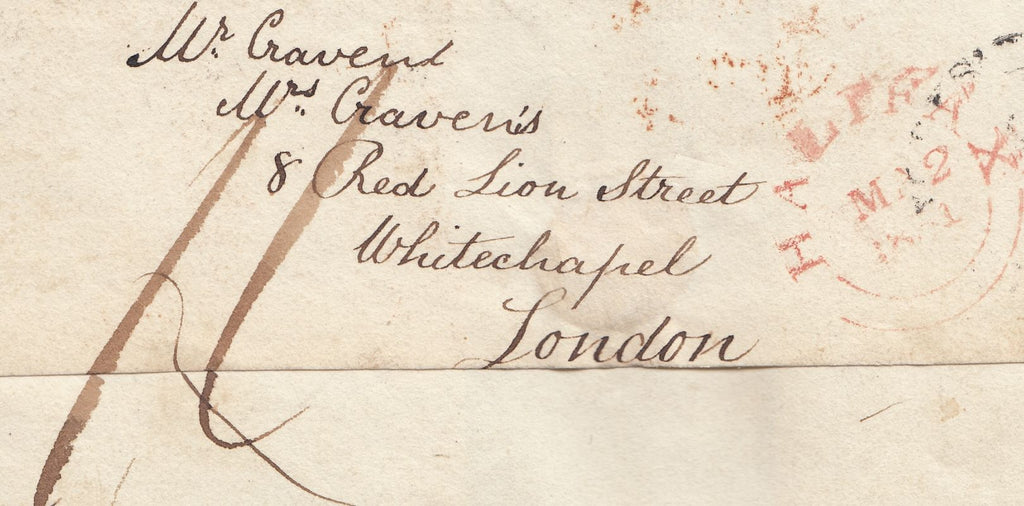 Mr. Cravend
Mrs. Craven's
8 Red Lion Street
Whitechapel
London
HALIFAX
MY 2